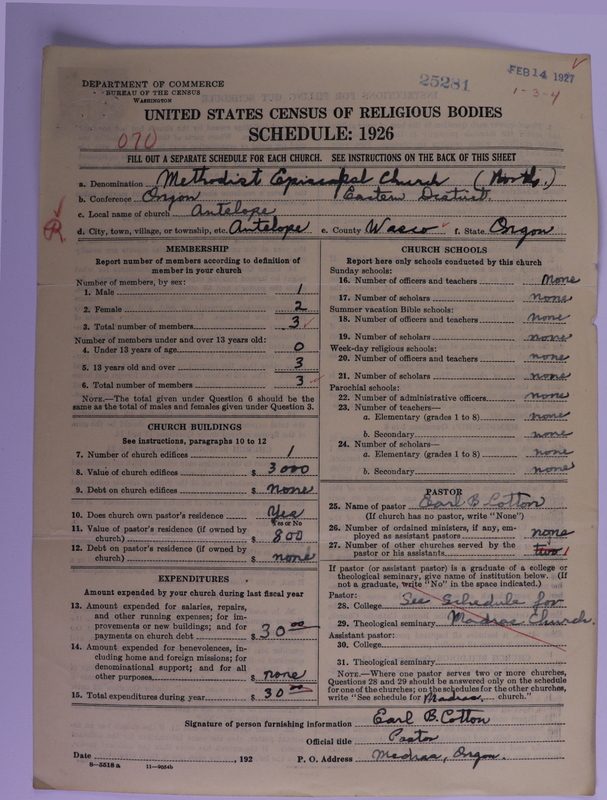 DEPARTMENT OF COMMERCE
BUREAU OF THE CENSUS
WASHINGTON
25281
FEB 14 1927
1-3-4
UNITED STATES CENSUS OF RELIGIOUS BODIES
SCHEDULE: 1926
070
FILL OUT A SEPARATE SCHEDULE FOR EACH CHURCH. SEE INSTRUCTIONS ON THE BACK OF THIS SHEET
a. Denomination Methodist Episcopal Church (North.)
b. Conference Oregon Eastern District.
c. Local name of church Antelope
d. City, town, village, or township, etc. Antelope e. County Wasco f. State Oregon
R
MEMBERSHIP
Report number of members according to definition of
member in your church
Number of members, by sex:
1. Male 1
2. Female 2
3. Total number of members 3
Number of members under and over 13 years old:
4. Under 13 years of age 0
5. 13 years old and over 3
6. Total number of members 3
NOTE.—The total given under Question 6 should be the
same as the total of males and females given under Question 3.
CHURCH BUILDINGS
See instructions, paragraphs 10 to 12
7. Number of church edifices 1
8. Value of church edifices $ 3000
9. Debt on church edifices $ none
10. Does church own pastor's residence Yes
Yes or No
11. Value of pastor's residence (if owned by
church) $ 800
12. Debt on pastor's residence (if owned by
church) $ none
EXPENDITURES
Amount expended by your church during last fiscal year
13. Amount expended for salaries, repairs,
and other running expenses; for im-
provements or new buildings; and for
payments on church debt $ 30 00
14. Amount expended for benevolences, in-
cluding home and foreign missions; for
denominational support; and for all
other purposes $ none
15. Total expenditures during year $ 30 00
CHURCH SCHOOLS
Report here only schools conducted by this church
Sunday schools:
16. Number of officers and teachers none
17. Number of scholars none
Summer vacation Bible schools:
18. Number of officers and teachers none
19. Number of scholars none
Week-day religious schools:
20. Number of officers and teachers none
21. Number of scholars none
Parochial schools:
22. Number of administrative officers none
23. Number of teachers—
a. Elementary (grades 1 to 8) none
b. Secondary none
24. Number of scholars—
a. Elementary (grades 1 to 8) none
b. Secondary none
PASTOR
25. Name of pastor Earl B Cotton
(If church has no pastor, write "None")
26. Number of ordained ministers, if any, em-
ployed as assistant pastors none
27. Number of other churches served by the
pastor or his assistants two 1
If pastor (or assistant pastor) is a graduate of a college or
theological seminary, give name of institution below. (If
not a graduate, write "No" in the space indicated.)
Pastor:
28. College See Schedule for
29. Theological seminary Madras Church.
Assistant pastor:
30. College
31. Theological seminary
NOTE.—Where one pastor serves two or more churches,
Questions 28 and 29 should be answered only on the schedule
for one of the churches; on the schedules for the other churches,
write "See schedule for Madras church."
Signature of person furnishing information Earl B. Cotton
Official title Pastor
Date , 192 P. O. Address Madras, Oregon.
8—5518 a 11—9654b